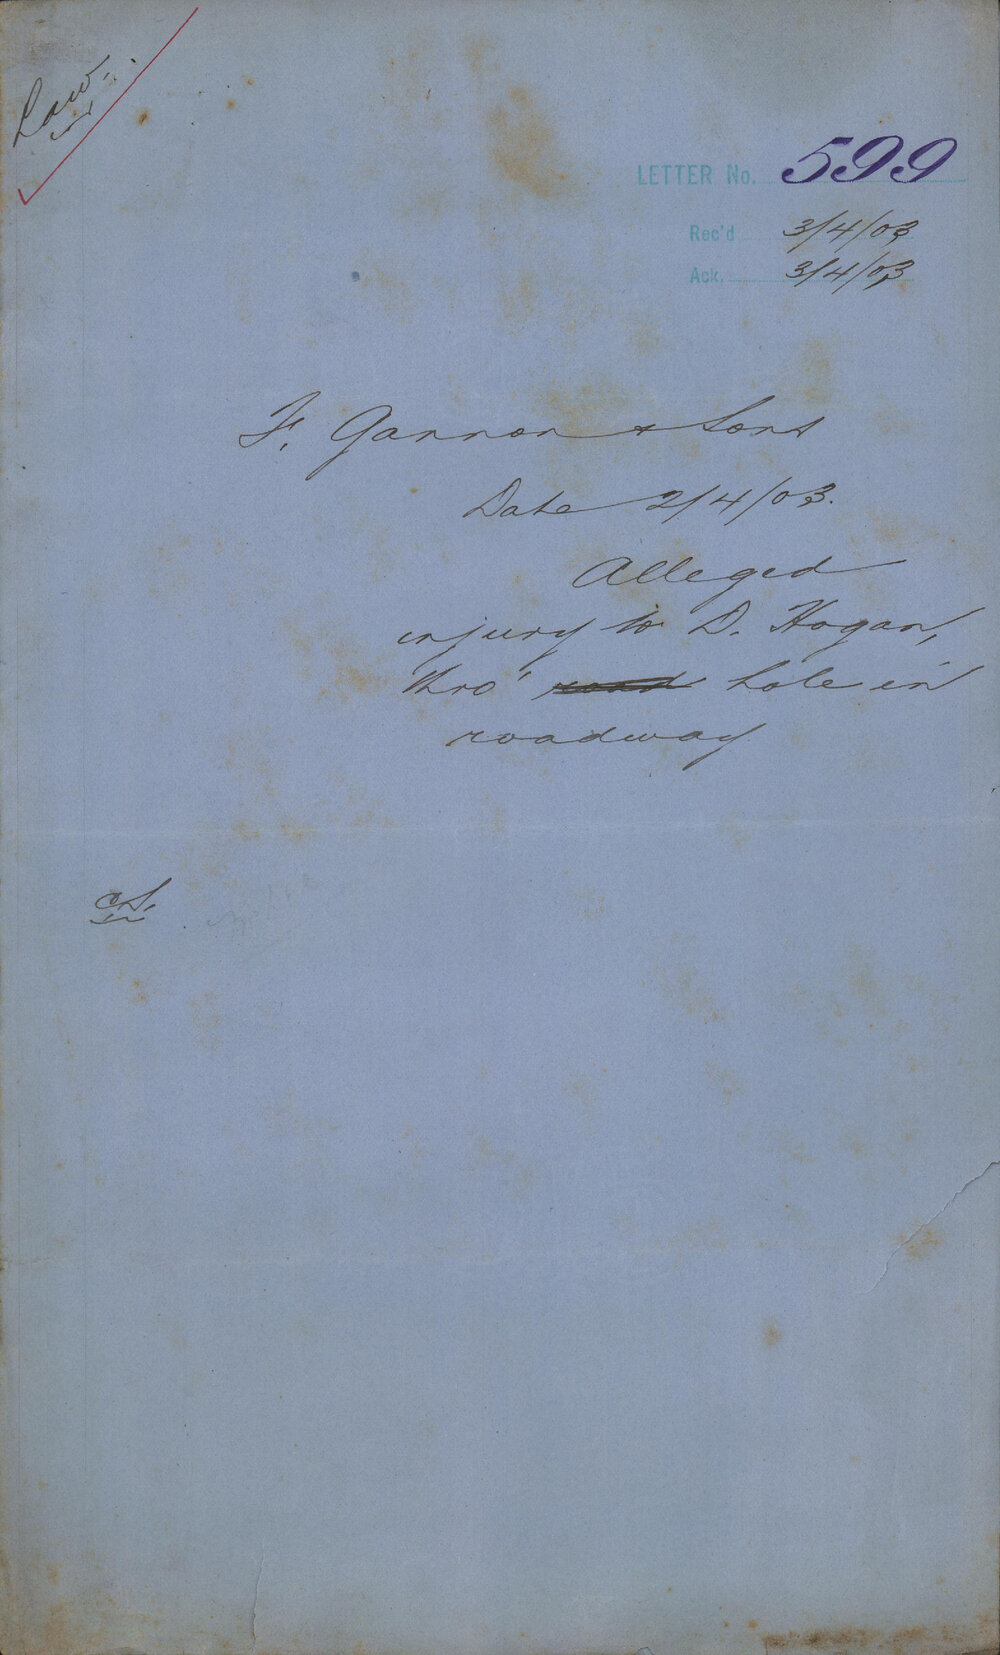 Law.
LETTER No. 599
Rec'd 3/4/03
Ack. 3/4/03
F. Gannon & Sons
Date 2/4/03.
Alleged
injury to D. Hogan,
thro' road hole in
roadway